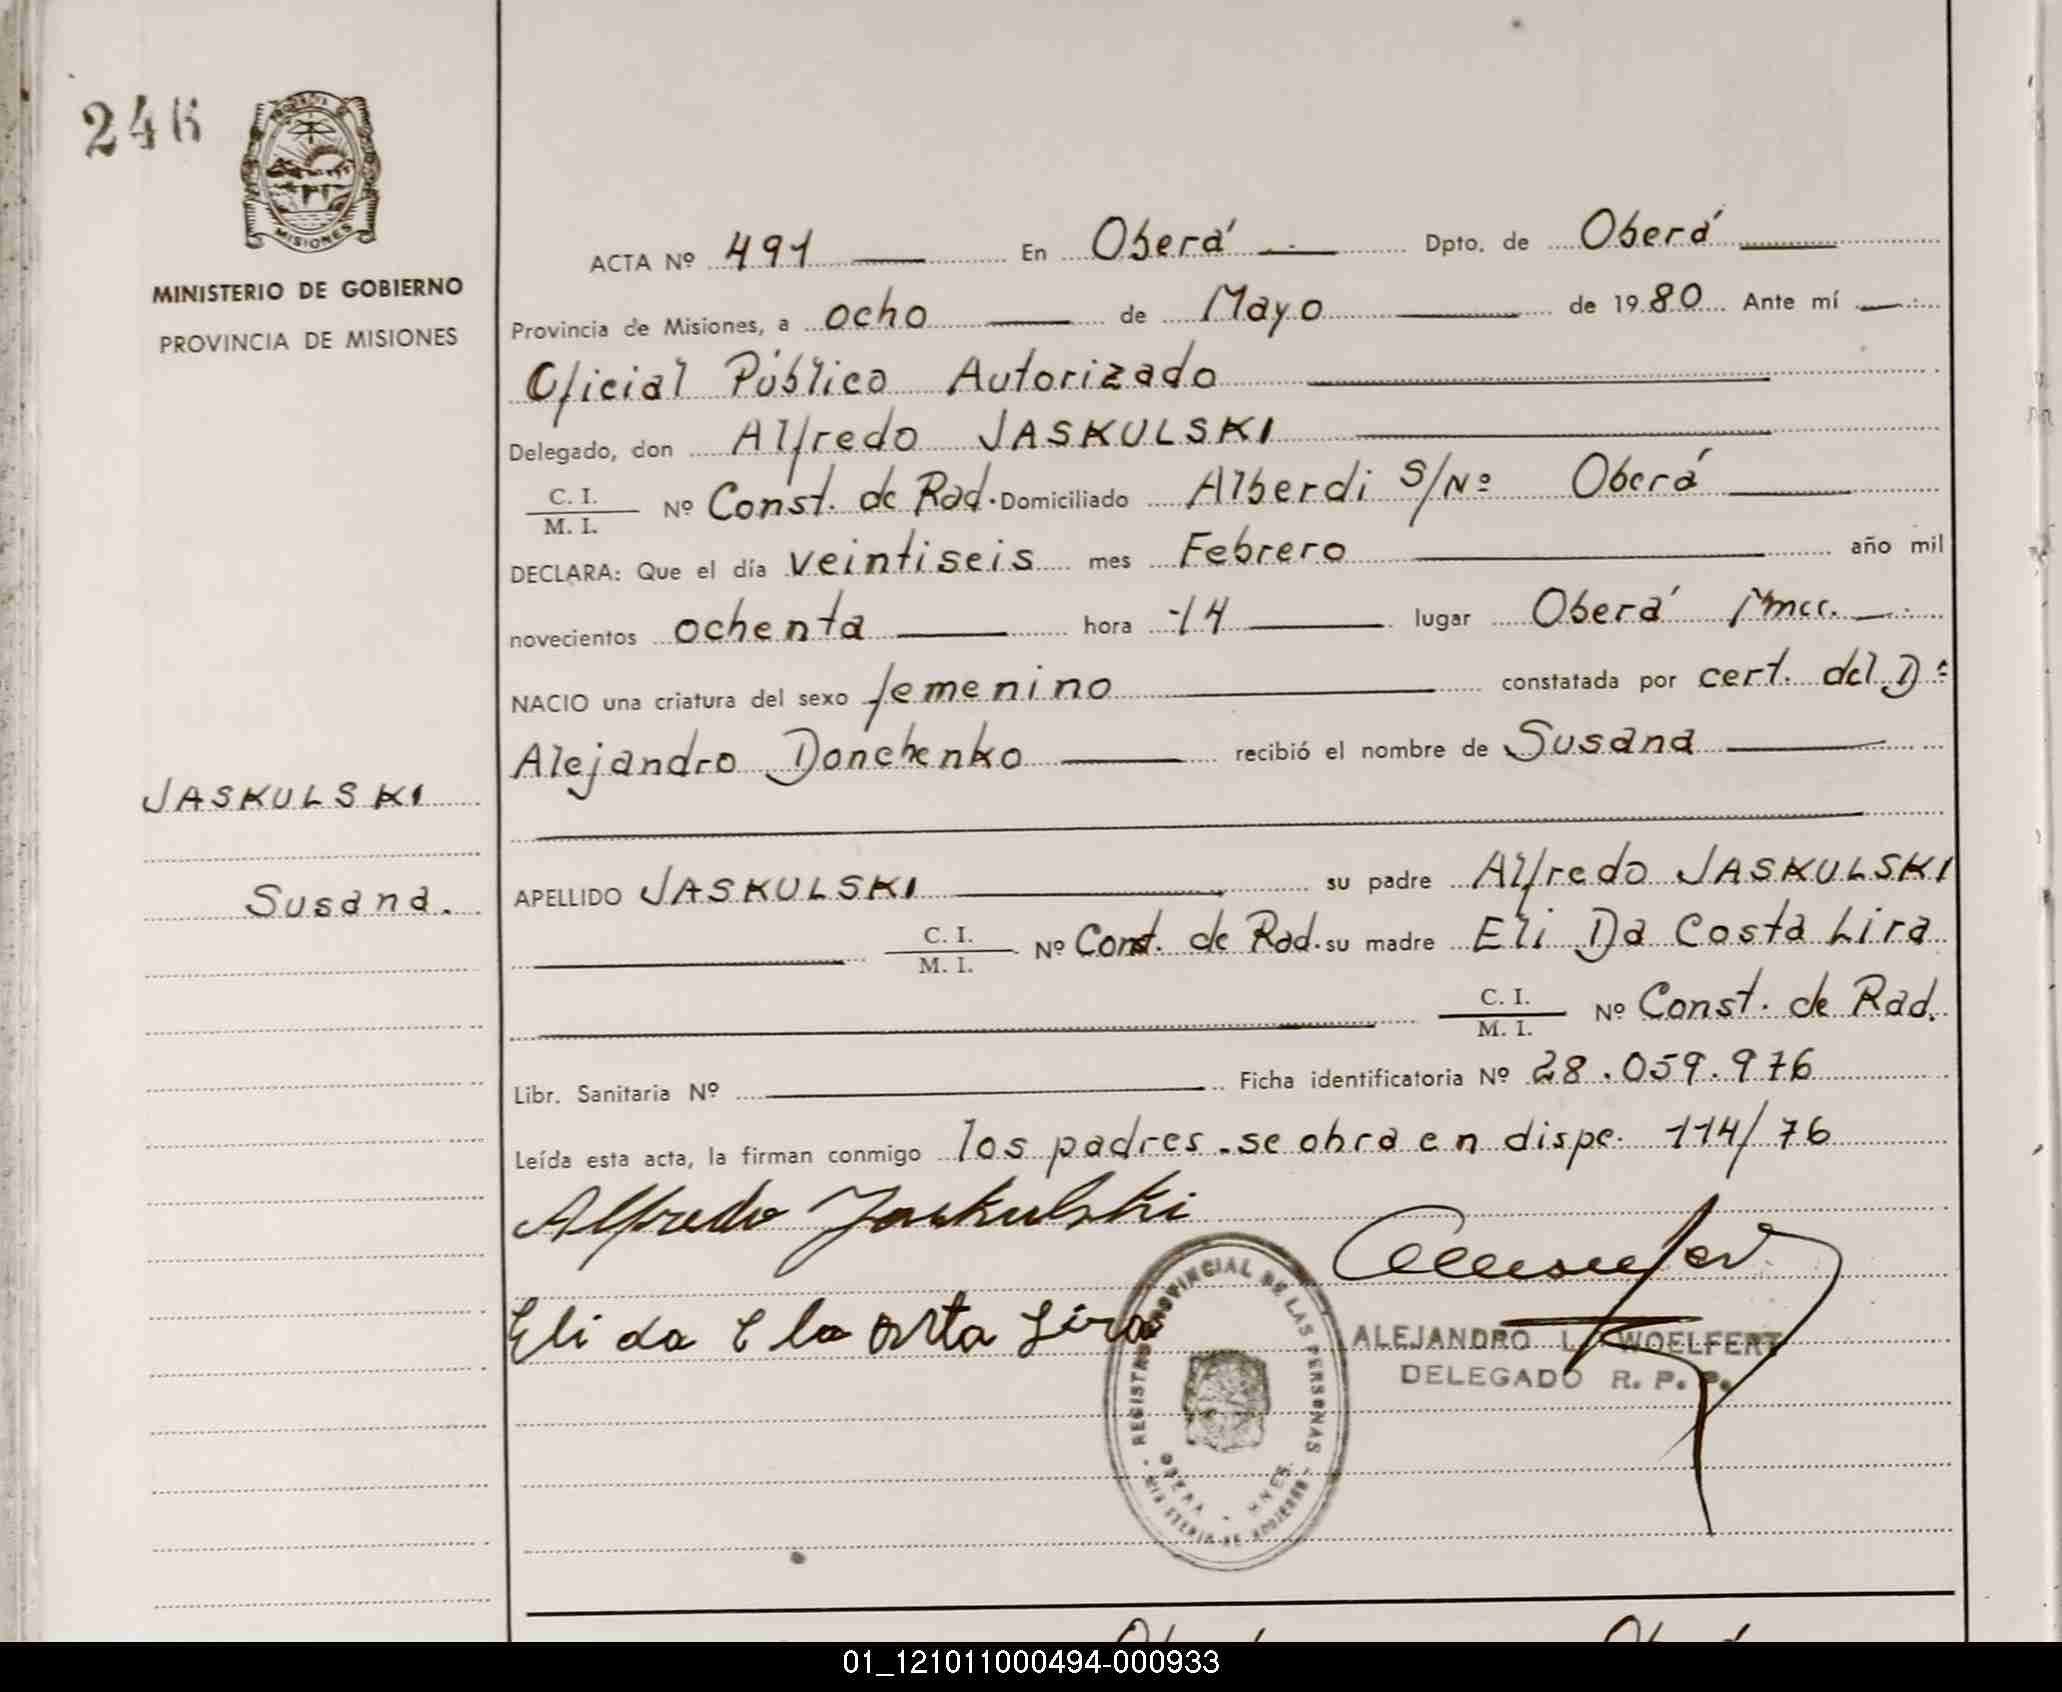 MISIONES
MINISTERIO DE GOBIERNO
PROVINCIA DE MISIONES
JASKULSKI
Susana.
ACTA Nº 491 En Oberá Dpto. de Oberá
Provincia de Misiones, a ocho de Mayo de 1980 Ante mí
Oficial Público Autorizado
Delegado, don Alfredo JASKULSKI
C. I.
M. I. Nº Const. de Rad. Domiciliado Alberdi S/Nº Oberá
DECLARA: Que el día veintiseis mes Febrero año mil
novecientos ochenta hora 14 lugar Oberá
NACIO una criatura del sexo femenino constatada por cert. del D
Alejandro Donchenko recibió el nombre de Susana
APELLIDO JASKULSKI su padre Alfredo JASKULSKI
C. I.
M. I. Nº Const. de Rad. su madre Eli Da Costa Lira
C. I.
M. I. Nº Const. de Rad.
Libr. Sanitaria Nº Ficha identificatoria Nº 28.059.976
Leída esta acta, la firman conmigo los padres. se obra en dispe. 114/76
Alfredo Jaskulski
Eli da
REGISTRO PROVINCIAL DE LAS PERSONAS
OBERA - MNES.
MINISTERIO DE GOBIERNO
ALEJANDRO L. WOELFERT
DELEGADO R. P. P.
01_121011000494-000933